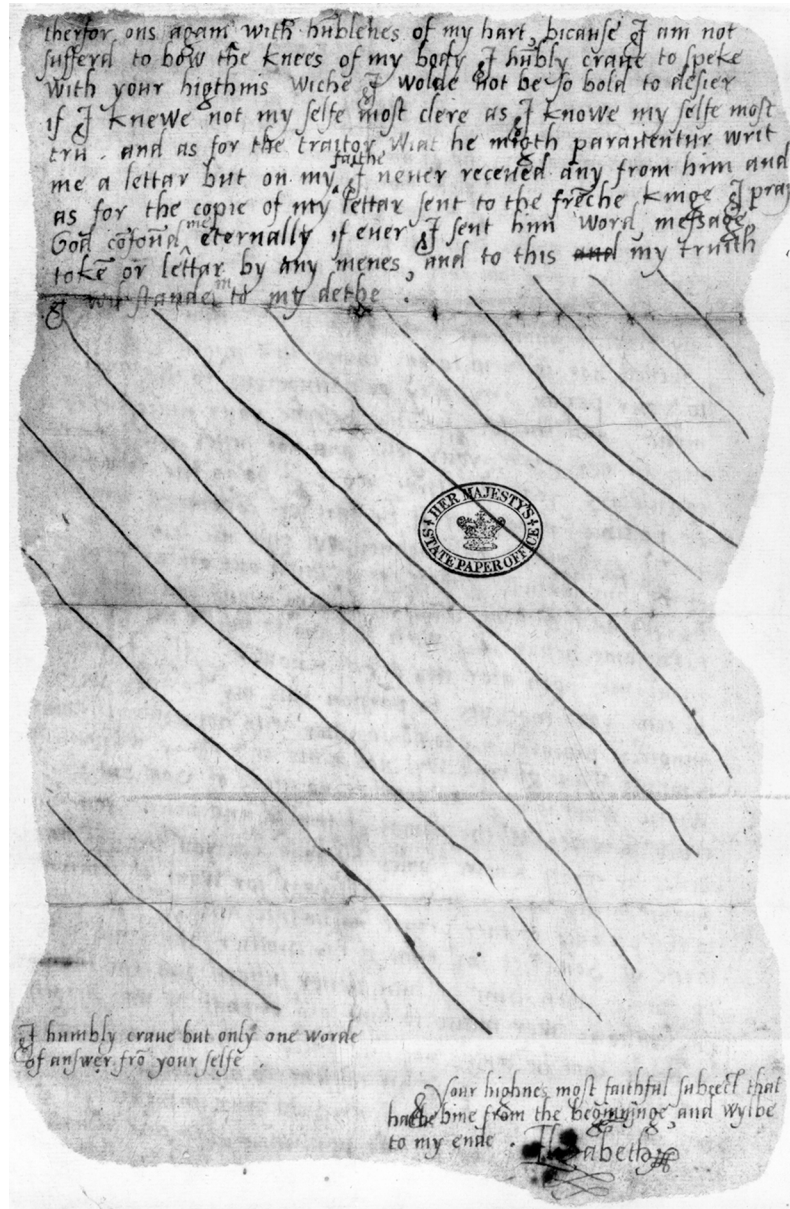 therfor ons again with hũblenes of my hart, bicause I am not
sufferd to bow the knees of my body I hũbly craue to speke
with your higthnis wiche I wolde not be so bold to desier
if I knewe not my selfe most clere as I knowe my selfe most
tru. and as for the traitor Wiat he migth parauentur writ
me a lettar but on my faithe I neuer receued any from him and
as for the copie of my lettar sent to the frẽche kinge I pray
God cõfoũd me eternally if euer I sent him word, message,
tokẽ or lettar by any menes, and to this and my truith
I wil stande in to my dethe.
HER MAJESTY'S
STATE PAPER OFFICE
I humbly craue but only one worde
of answer frõ your selfe.
Your highnes most faithful subiect that
hathe bine from the beginninge, and wylbe
to my ende.
Elizabeth